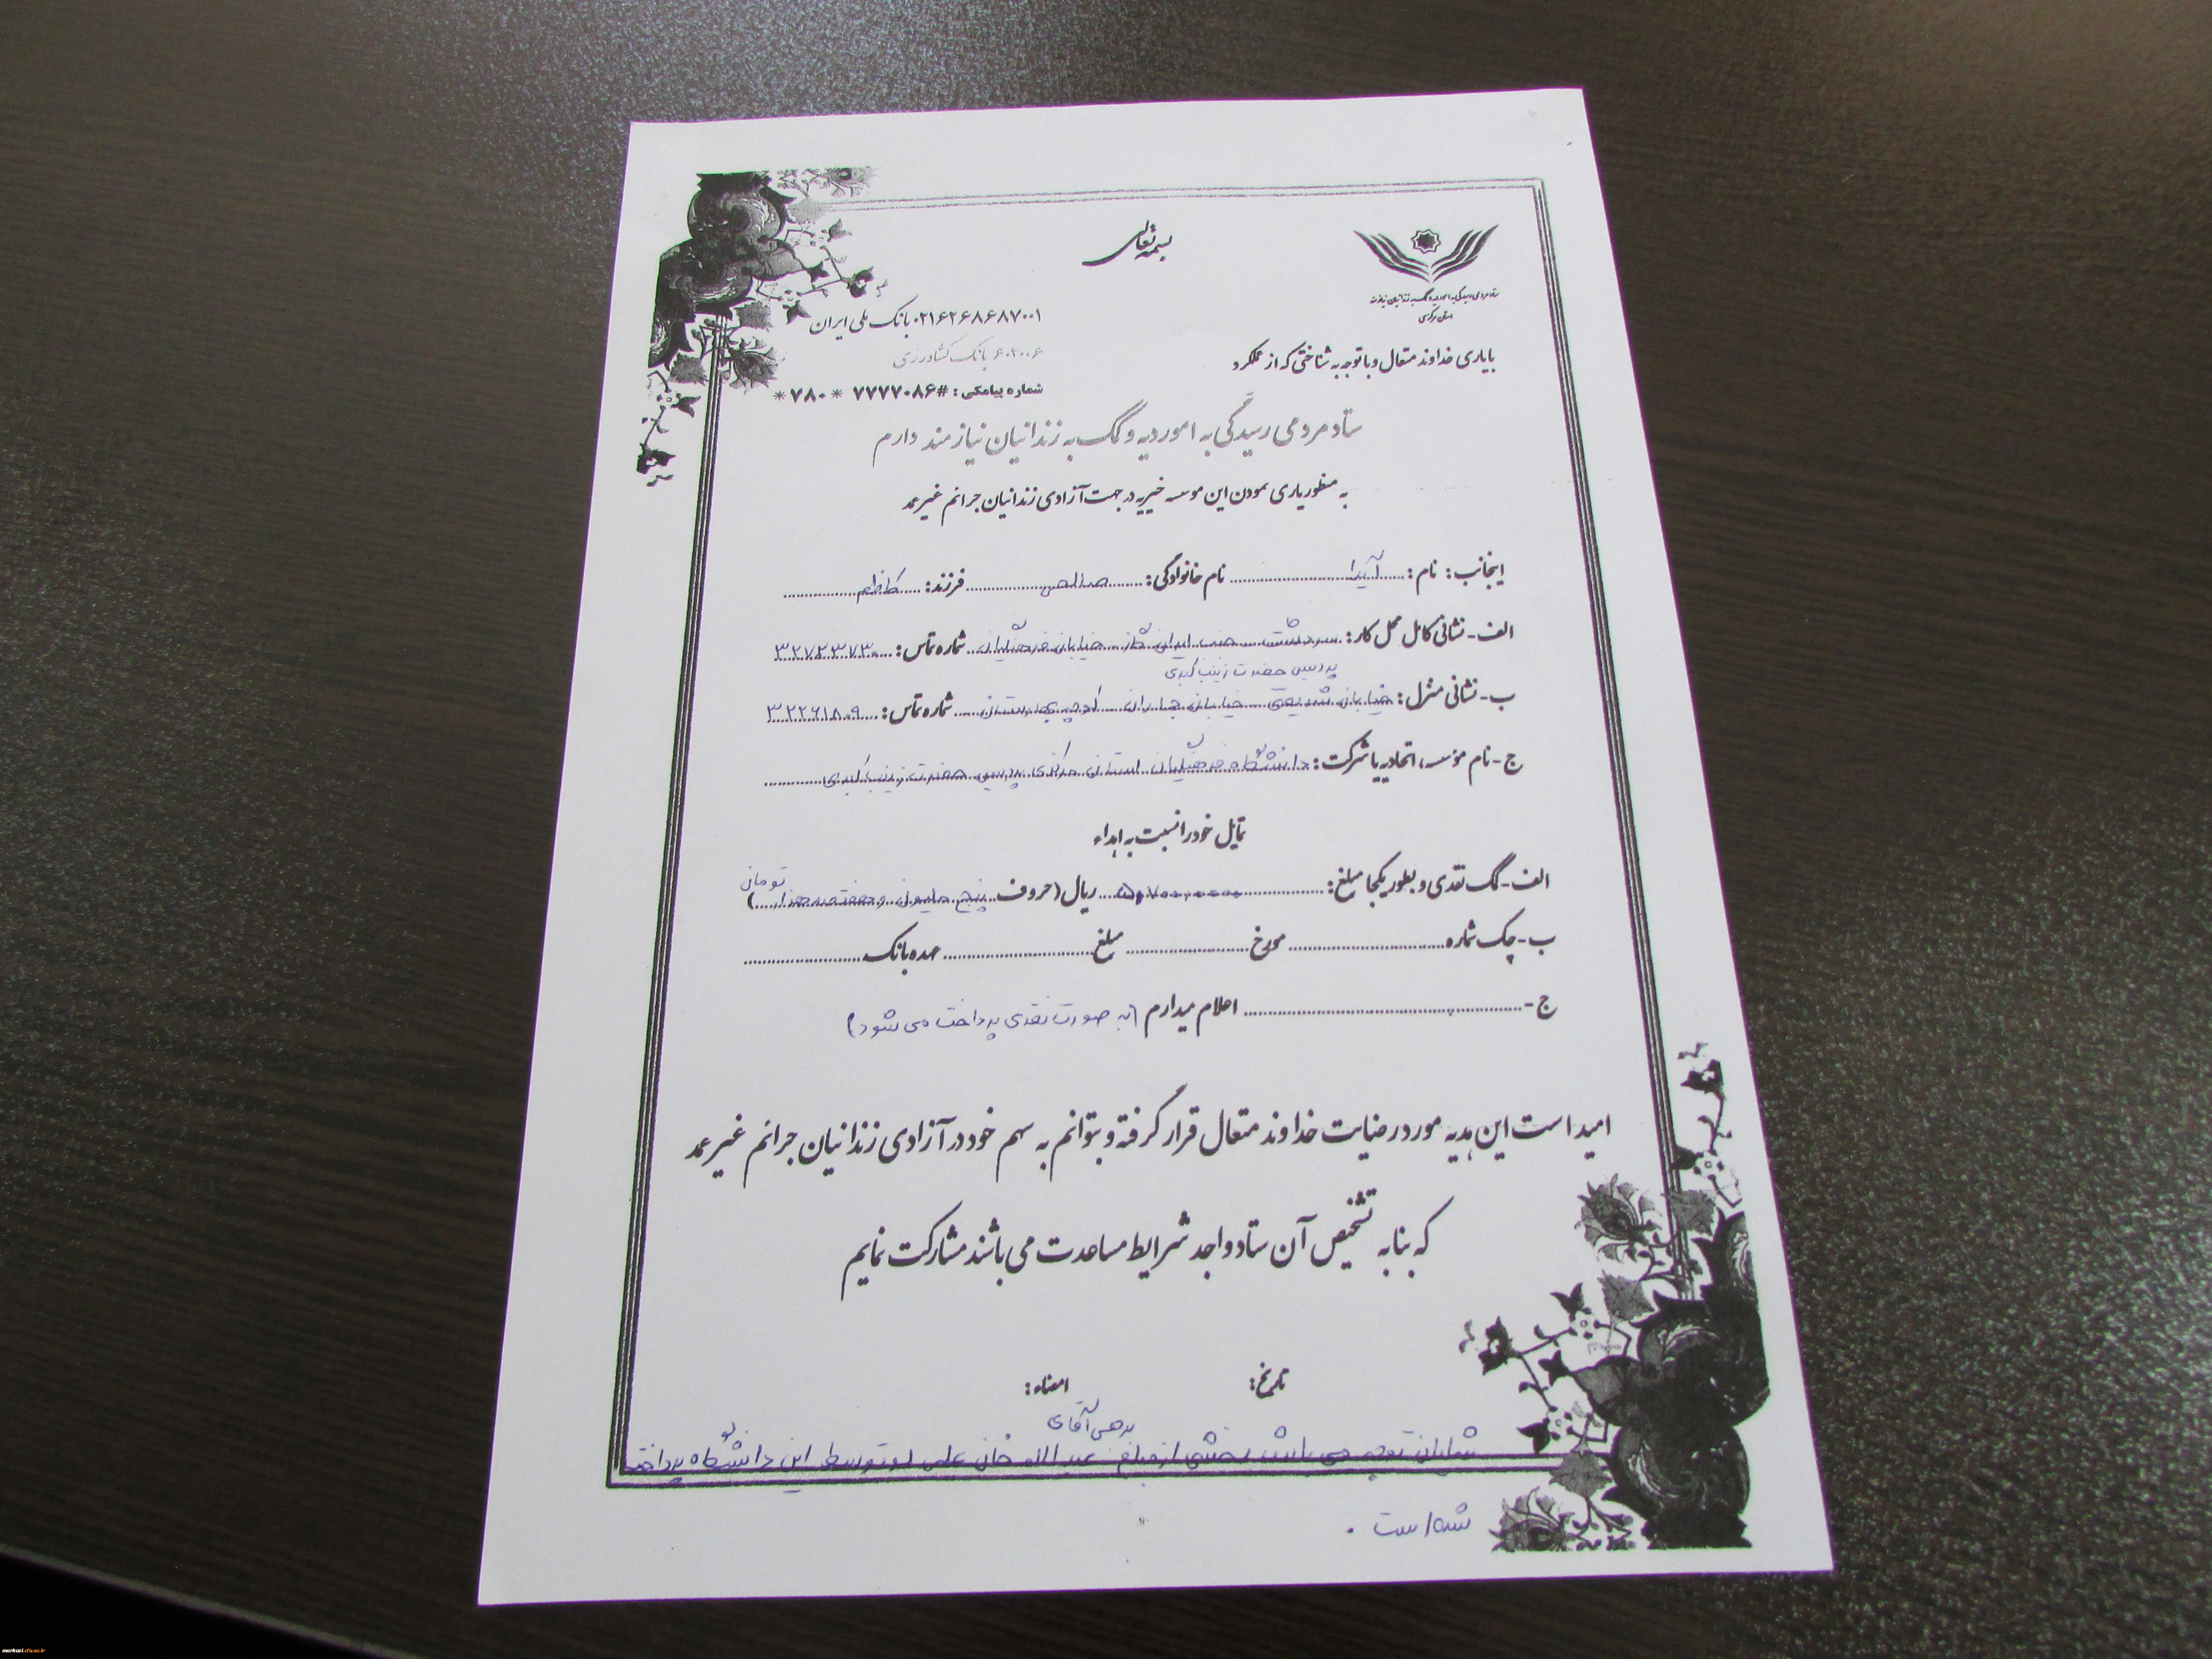 بسمه تعالی
ستاد مردمی رسیدگی به امور دیه و کمک به زندانیان نیازمند
استان مرکزی
۰۲۱۶۲۶۸۶۸۷۰۰۱ بانک ملی ایران
۶۰۲۰۰۶ بانک کشاورزی
شماره پیامکی: #۷۷۷۷۰۸۶ * ۷۸۰ *
با یاری خداوند متعال و با توجه به شناختی که از عملکرد
ستاد مردمی رسیدگی به امور دیه و کمک به زندانیان نیازمند دارم
به منظور یاری نمودن این موسسه خیریه در جهت آزادی زندانیان جرائم غیر عمد
اینجانب: نام: آیدا نام خانوادگی: صالحی فرزند: کاظم
الف- نشانی کامل محل کار: سردشت جنب ایران گاز خیابان فرهنگیان شماره تماس: ۳۲۷۲۳۷۳۰
پردیس حضرت زینب کبری
ب- نشانی منزل: خیابان شریعتی خیابان کوچه شماره تماس: ۳۲۲۶۱۸۰۹
ج- نام مؤسسه، اتحادیه یا شرکت: دانشگاه فرهنگیان استان مرکزی پردیس حضرت زینب کبری
تمایل خود را نسبت به اهداء
الف- کمک نقدی و بطور یکجا مبلغ: ریال (حروف پنج میلیون و هفتصد هزار تومان)
ب- چک شماره مورخ مبلغ عهده بانک
ج- اعلام میدارم (به صورت نقدی پرداخت می شود)
امید است این هدیه مورد رضایت خداوند متعال قرار گرفته و بتوانم به سهم خود در آزادی زندانیان جرائم غیر عمد
که بنا به تشخیص آن ستاد واجد شرایط مساعدت می باشند مشارکت نمایم
تاریخ: امضاء:
بدهی آقای
شایان توجه می باشد بخشی از مبلغ عبدالله خان علی لو توسط این دانشگاه پرداخت
شده است.
markazi.cfu.ac.ir